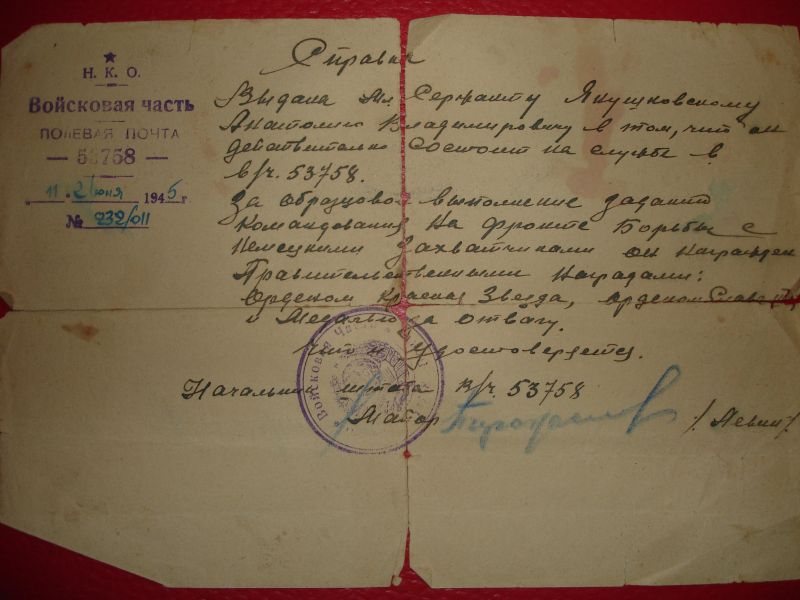 Н. К. О.
Войсковая часть
ПОЛЕВАЯ ПОЧТА
— 53758 —
„ 11. " Июня 1945 г
№ 232/011
Справка
Выдана Мл. Сержанту Якушковскому
Анатолию Владимировичу в том, что он
действительно состоит на службе в
в/ч. 53758.
За образцовое выполнение заданий
Командования на фронте Борьбы с
Немецкими Захватчиками он награжден
Правительственными наградами:
орденом Красная Звезда, орденом Слава
и Медалью за отвагу.
Что и удостоверяется.
Начальник штаба в/ч. 53758
Майор / Левин /
Войсковая Часть